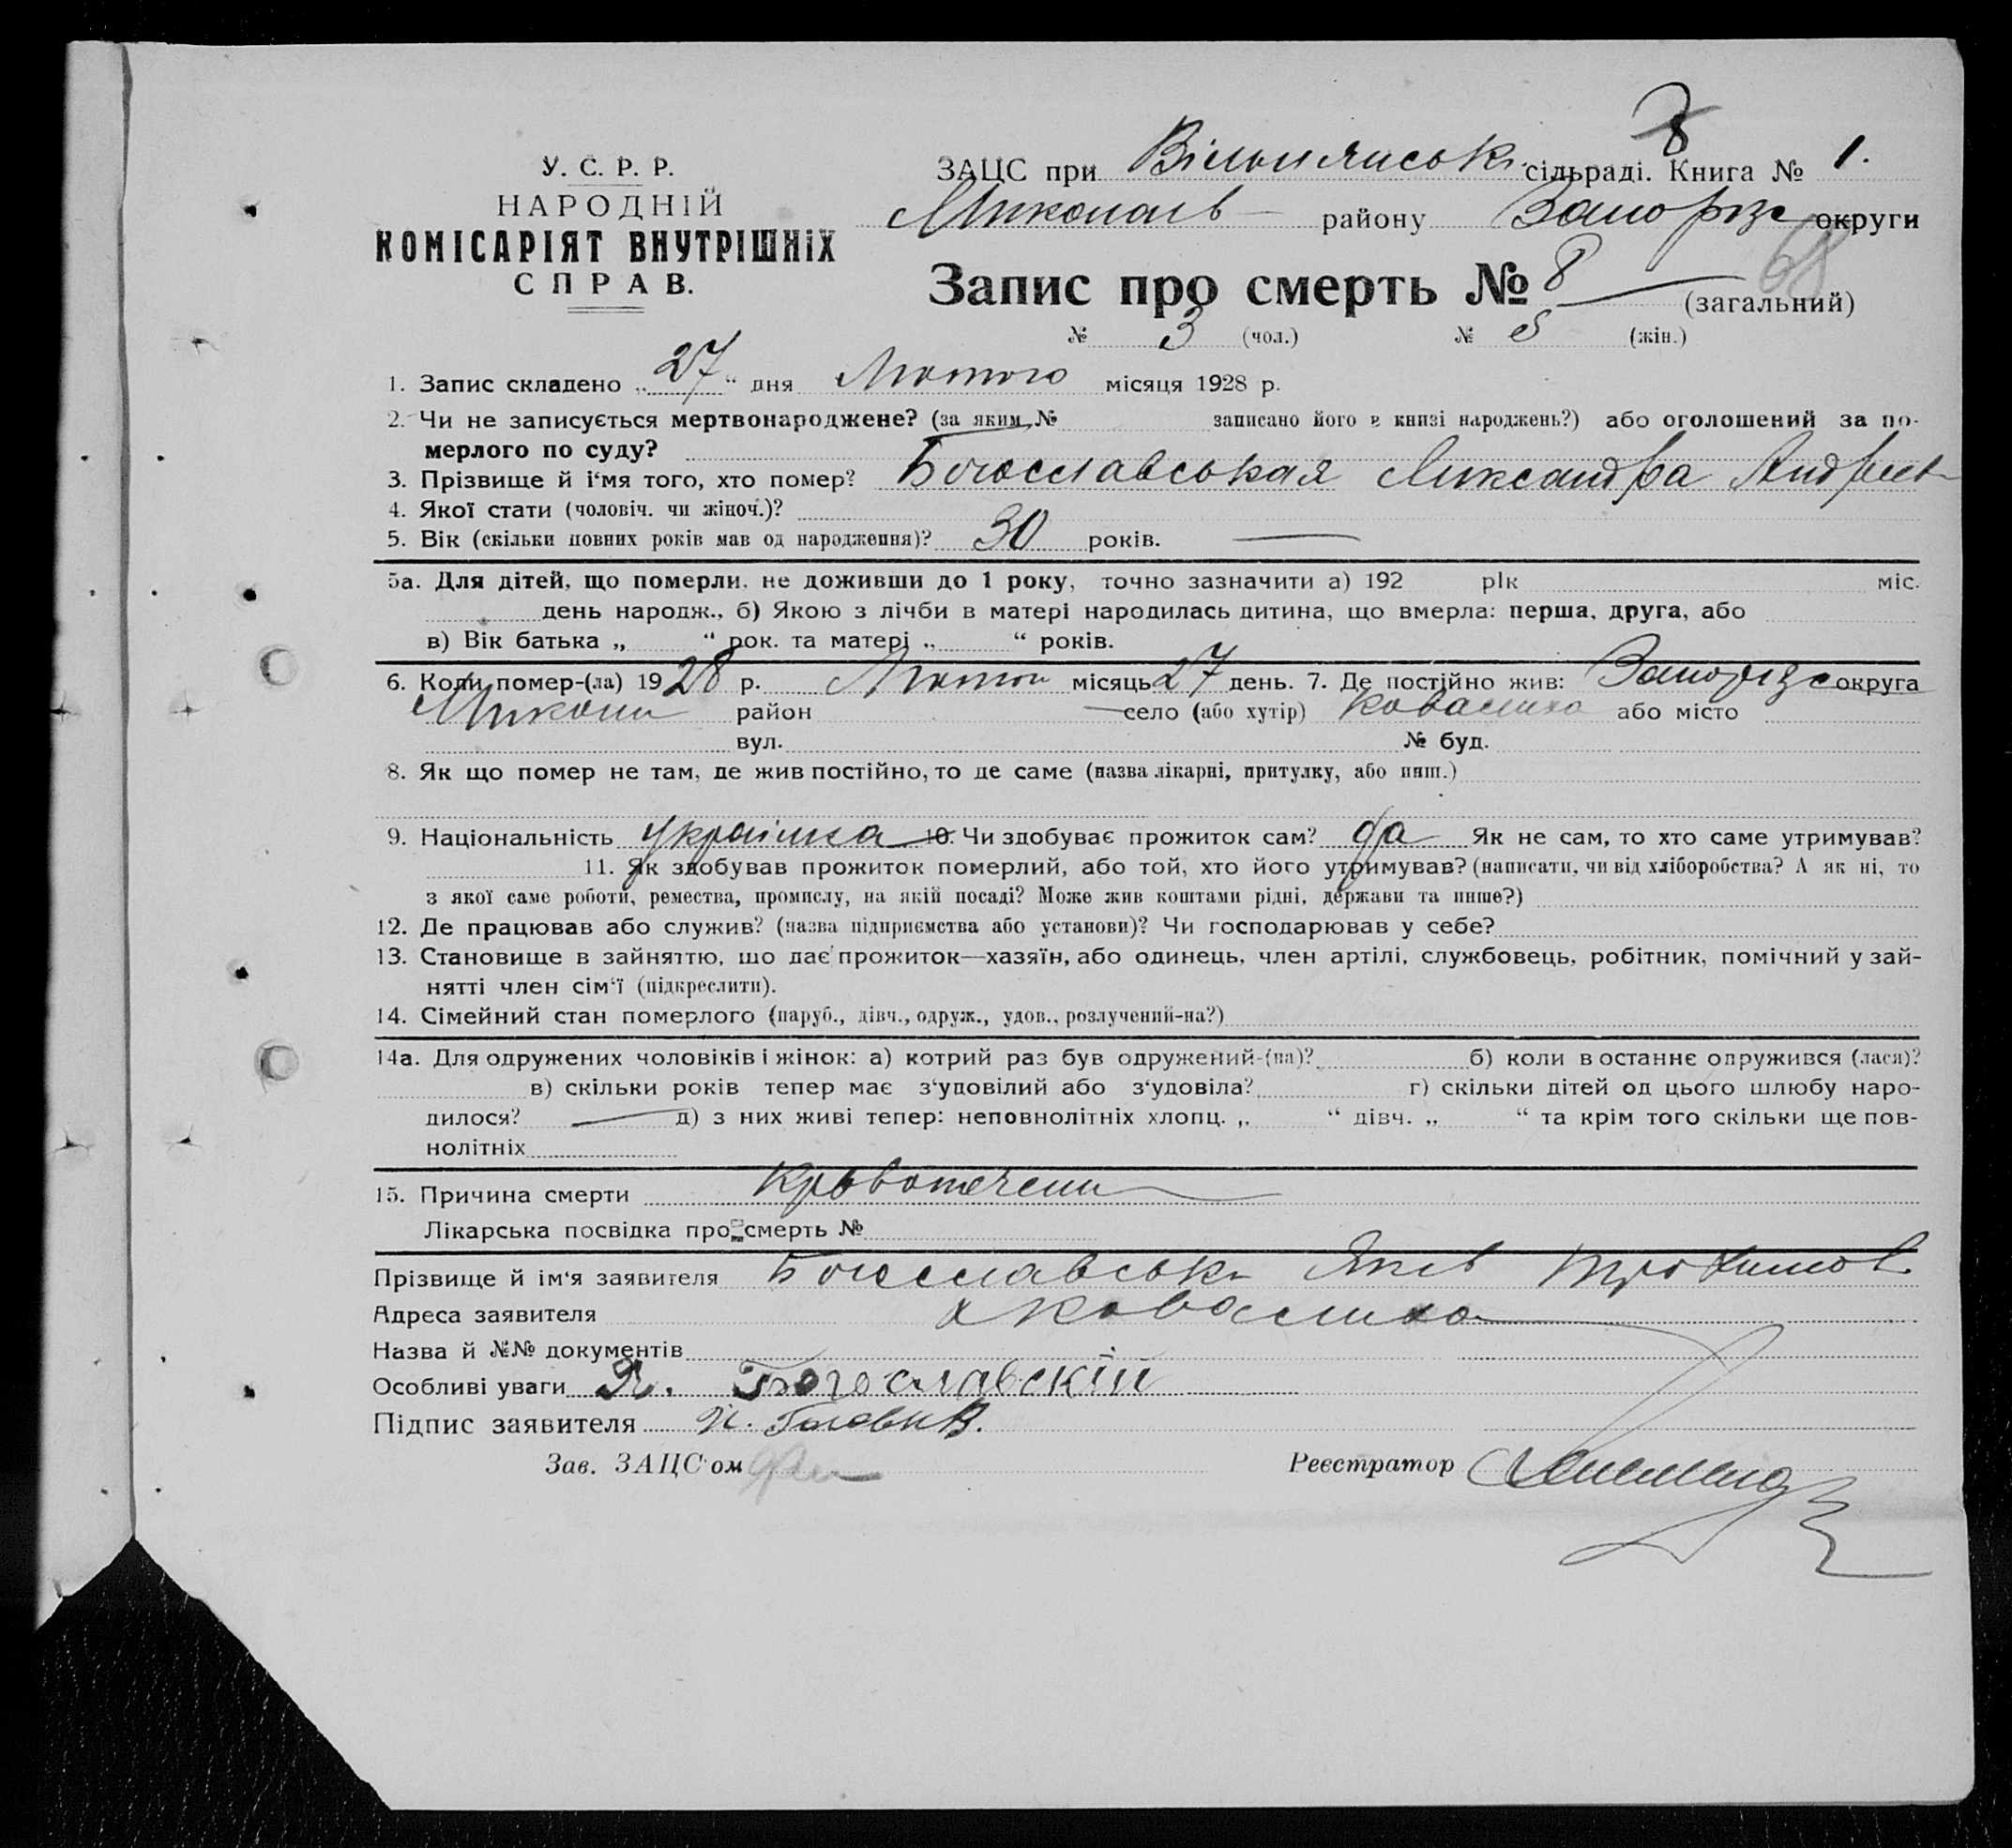 8
У. С. Р. Р.
НАРОДНІЙ
КОМІСАРІЯТ ВНУТРІШНІХ
СПРАВ.
ЗАЦС при Вільнянськ. сільраді. Книга № 1.
Миколаїв району Запоріз округи
68
Запис про смерть № 8 (загальний)
№ 3 (чол.) № 5 (жін.)
1. Запис складено „27“ дня Лютого місяця 1928 р.
2. Чи не записується мертвонароджене? (за яким № записано його в книзі народжень?) або оголошений за по-
мерлого по суду?
3. Прізвище й і‘мя того, хто помер? Богославськая Александра Андреев
4. Якої стати (чоловіч. чи жіноч.)?
5. Вік (скільки повних років мав од народження)? 30 років.
5а. Для дітей, що померли, не доживши до 1 року, точно зазначити а) 192 рік міс.
день народж., б) Якою з лічби в матері народилась дитина, що вмерла: перша, друга, або
в) Вік батька „ “ рок. та матері „ “ років.
6. Коли помер-(ла) 1928 р. Лютого місяць 27 день. 7. Де постійно жив: Запоріз округа
район село (або хутір) Ковалиха або місто
вул. № буд.
8. Як що помер не там, де жив постійно, то де саме (назва лікарні, притулку, або инш.)
9. Національність українка 10. Чи здобуває прожиток сам? да Як не сам, то хто саме утримував?
11. Як здобував прожиток померлий, або той, хто його утримував? (написати, чи від хліборобства? А як ні, то
з якої саме роботи, ремества, промислу, на якій посаді? Може жив коштами рідні, держави та инше?)
12. Де працював або служив? (назва підприємства або установи)? Чи господарював у себе?
13. Становище в зайняттю, що дає прожиток—хазяїн, або одинець, член артілі, службовець, робітник, помічний у зай-
нятті член сім‘ї (підкреслити).
14. Сімейний стан померлого (паруб., дівч., одруж., удов., розлучений-на?)
14а. Для одружених чоловіків і жінок: а) котрий раз був одружений-(на)? б) коли в останнє одружився (лася)?
в) скільки років тепер має з‘удовілий або з‘удовіла? г) скільки дітей од цього шлюбу наро-
дилося? д) з них живі тепер: неповнолітніх хлопц. „ “ дівч. „ “ та крім того скільки ще пов-
нолітніх
15. Причина смерти Крововотечени
Лікарська посвідка про смерть №
Прізвище й ім‘я заявителя Богославськ Яків Трохимов.
Адреса заявителя х Ковалиха
Назва й №№ документів
Особливі уваги Я. Богославскій
Підпис заявителя
Зав. ЗАЦС‘ом Реєстратор